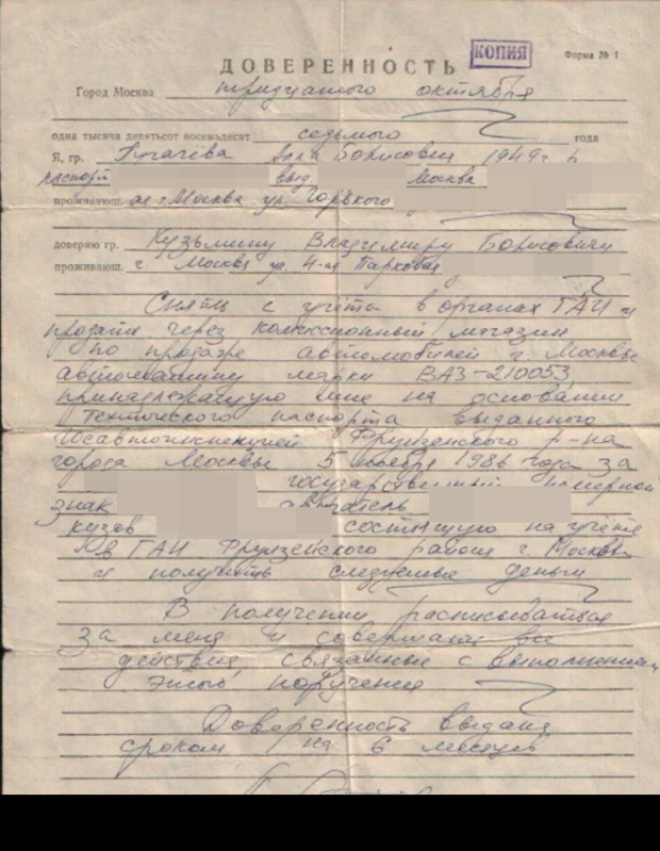 КОПИЯ
Форма № 1
ДОВЕРЕННОСТЬ
Город Москва тридцатого октября
одна тысяча девятьсот восемьдесят седьмого года
Я, гр. Пугачёва Алла Борисовна 1949г р
паспорт выд. Москва
проживающ. ая г. Москва ул. Горького
доверяю гр. Кузьмину Владимиру Борисовичу
проживающ. г. Москва ул. 4-ая Парковая
Снять с учёта в органах ГАИ и
продать через комиссионный магазин
по продаже автомобилей г. Москвы
автомашину марки ВАЗ-210053,
принадлежащую мне на основании
технического паспорта выданного
Госавтоинспекцией Фрунзенского р-на
города Москвы 5 ноября 1986 года за
государственный номерной
знак двигатель
кузов состоящую на учёте
в ГАИ Фрунзенского района г. Москвы
и получить следуемые деньги
В получении расписываться
за меня и совершать все
действия, связанные с выполнением
этого поручения
Доверенность выдана
сроком на 6 месяцев